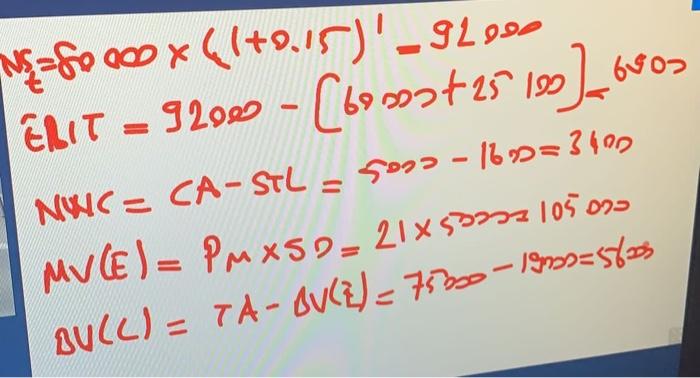 NS_t = 80 000 × (1+0.15)^1 = 92 000
EBIT = 92000 - [60 000 + 25 100] = 6900
NWC = CA - STL = 5000 - 1600 = 3400
MV(E) = PM × SO = 21 × 5000 = 105 000
BV(L) = TA - BV(E) = 75000 - 19000 = 56000